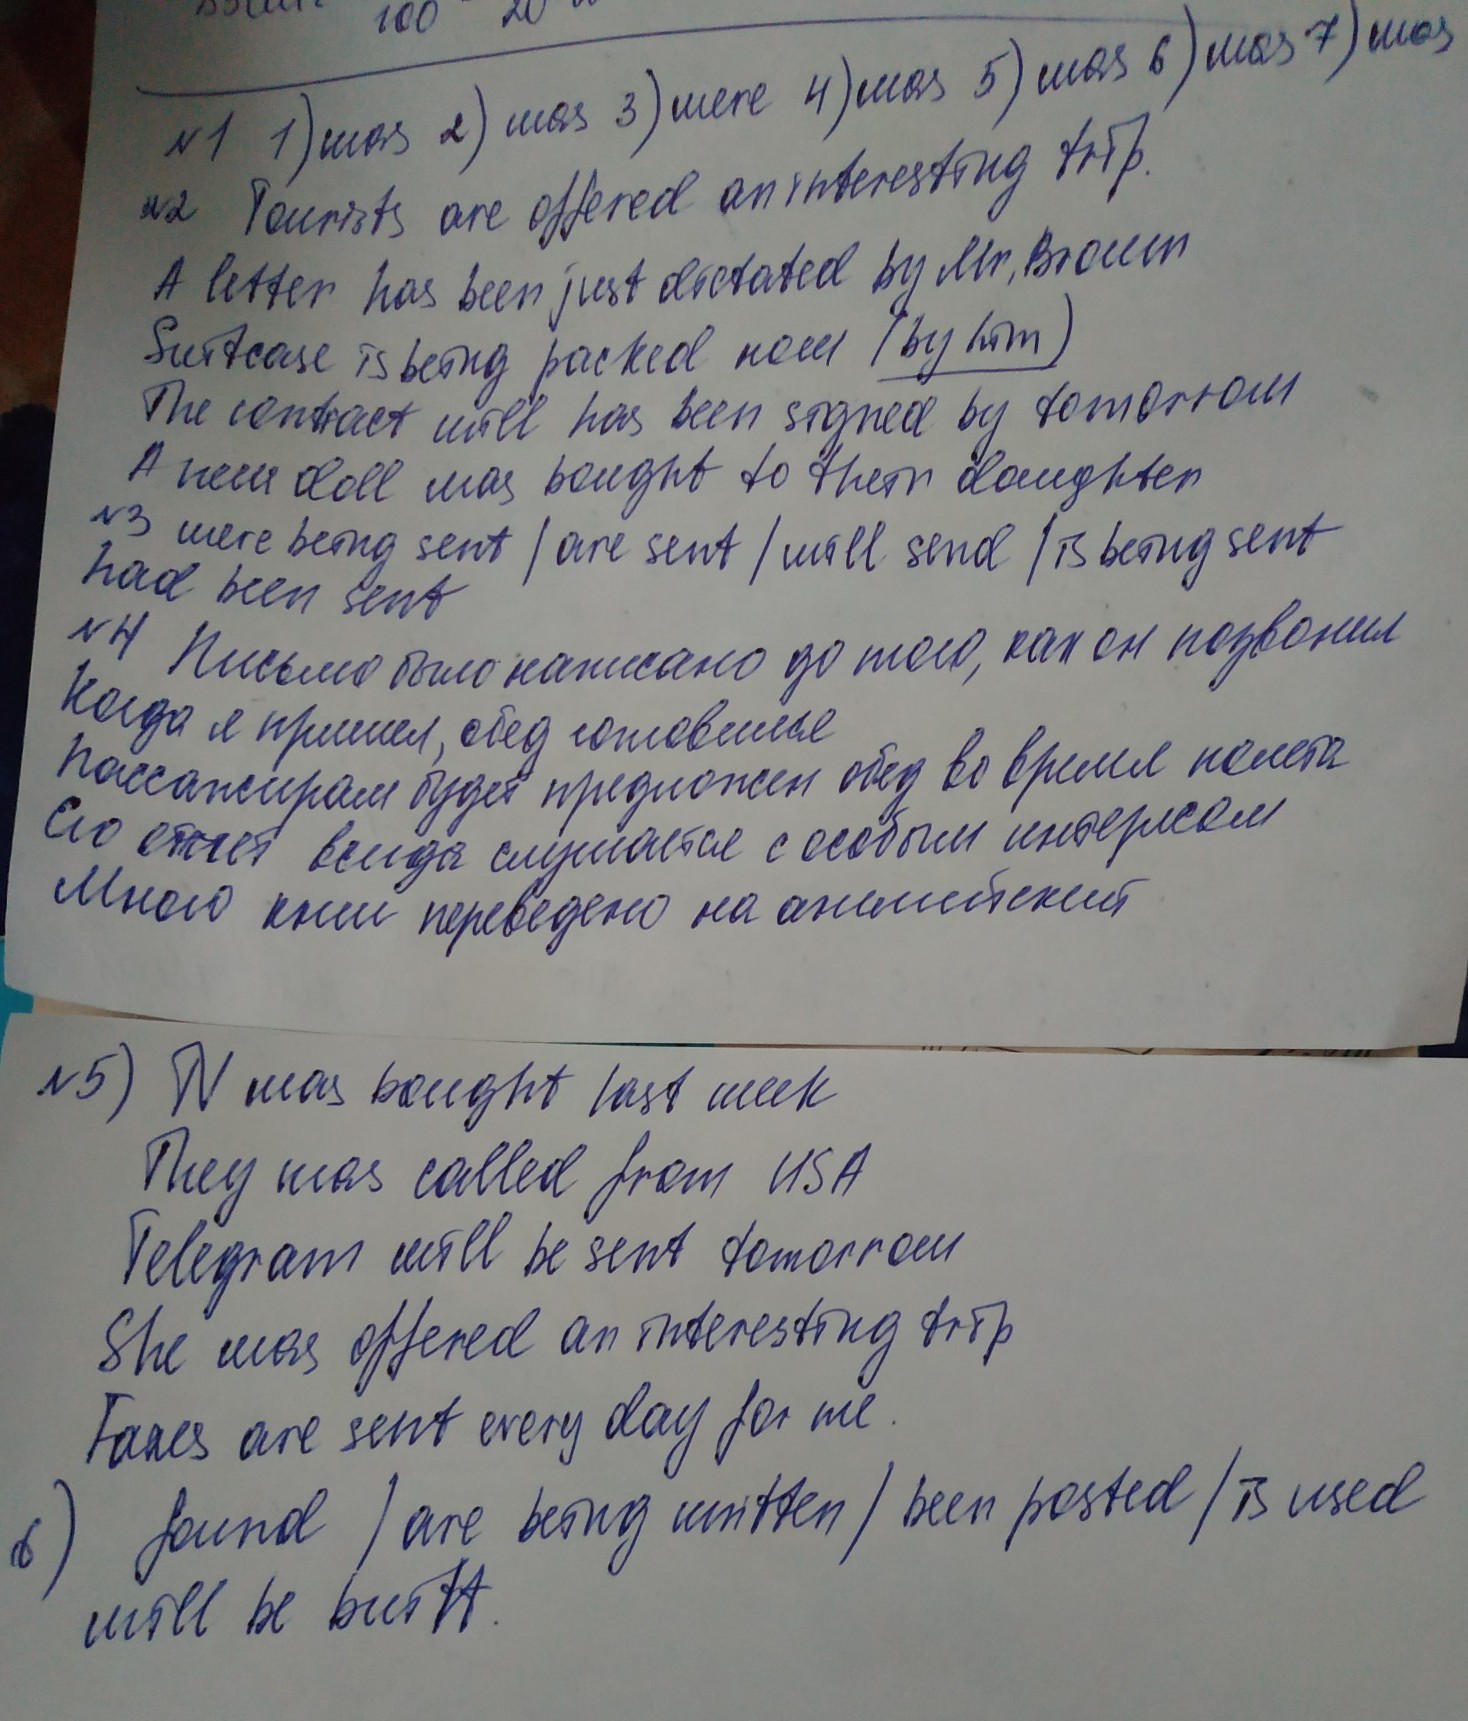 100 20
№1 1) was 2) was 3) were 4) was 5) was 6) was 7) was
№2 Tourists are offered an interesting trip.
A letter has been just dictated by Mr. Brown
Suitcase is being packed now (by him)
The contract will has been signed by tomorrow
A new doll was bought to their daughter
№3 were being sent / are sent / will send / is being sent
had been sent
№4 Письмо было написано до того, как он позвонил
Когда я пришел, обед готовился
Пассажирам будет предложен обед во время полета
Его отчет всегда слушается с особым интересом
Много книг переведено на английский
№5) TV was bought last week
They was called from USA
Telegram will be sent tomorrow
She was offered an interesting trip
Faxes are sent every day for me.
6) found / are being written / been posted / is used
will be built.